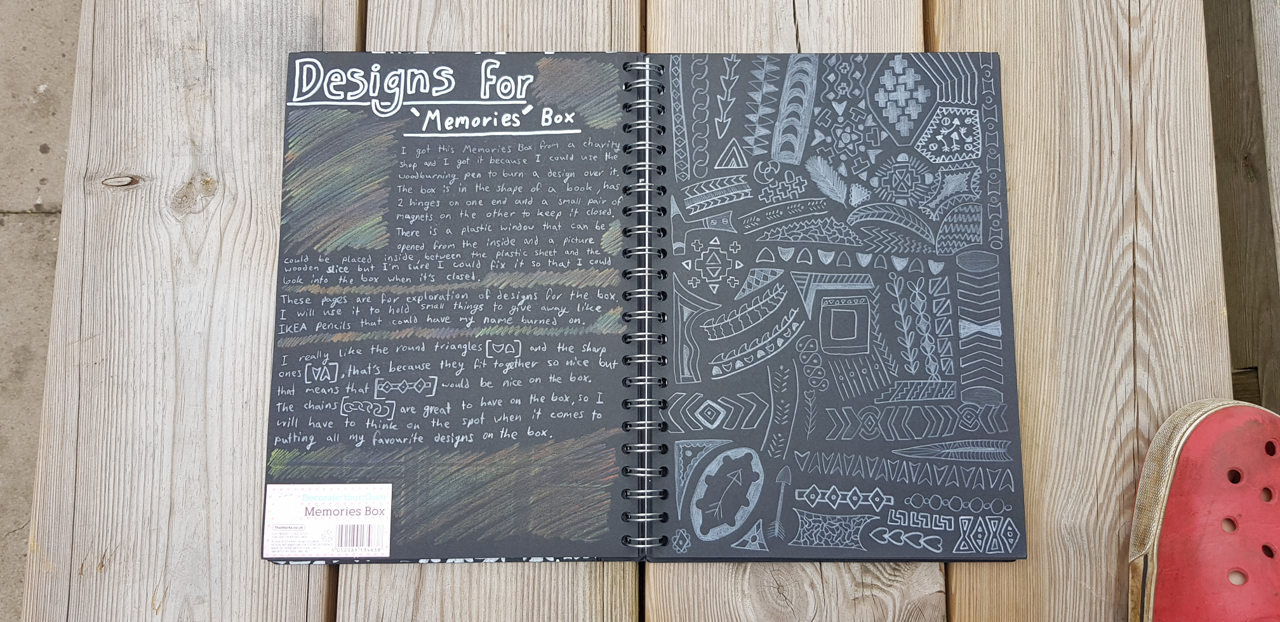 Designs for
'Memories' Box
I got this Memories Box from a charity
shop and I got it because I could use the
woodburning pen to burn a design over it.
The box is in the shape of a book, has
2 hinges on one end and a small pair of
magnets on the other to keep it closed.
There is a plastic window that can be
opened from the inside and a picture
could be placed inside, between the plastic sheet and the
wooden slice but I'm sure I could fix it so that I could
look into the box when it's closed.
These pages are for exploration of designs for the box.
I will use it to hold small things to give away like
IKEA pencils that could have my name burned on.
I really like the round triangles [ ] and the sharp
ones [ ], that's because they fit together so nice but
that means that [ ] would be nice on the box.
The chains [ ] are great to have on the box, so I
will have to think on the spot when it comes to
putting all my favourite designs on the box.
Decorate Your Own
Memories Box